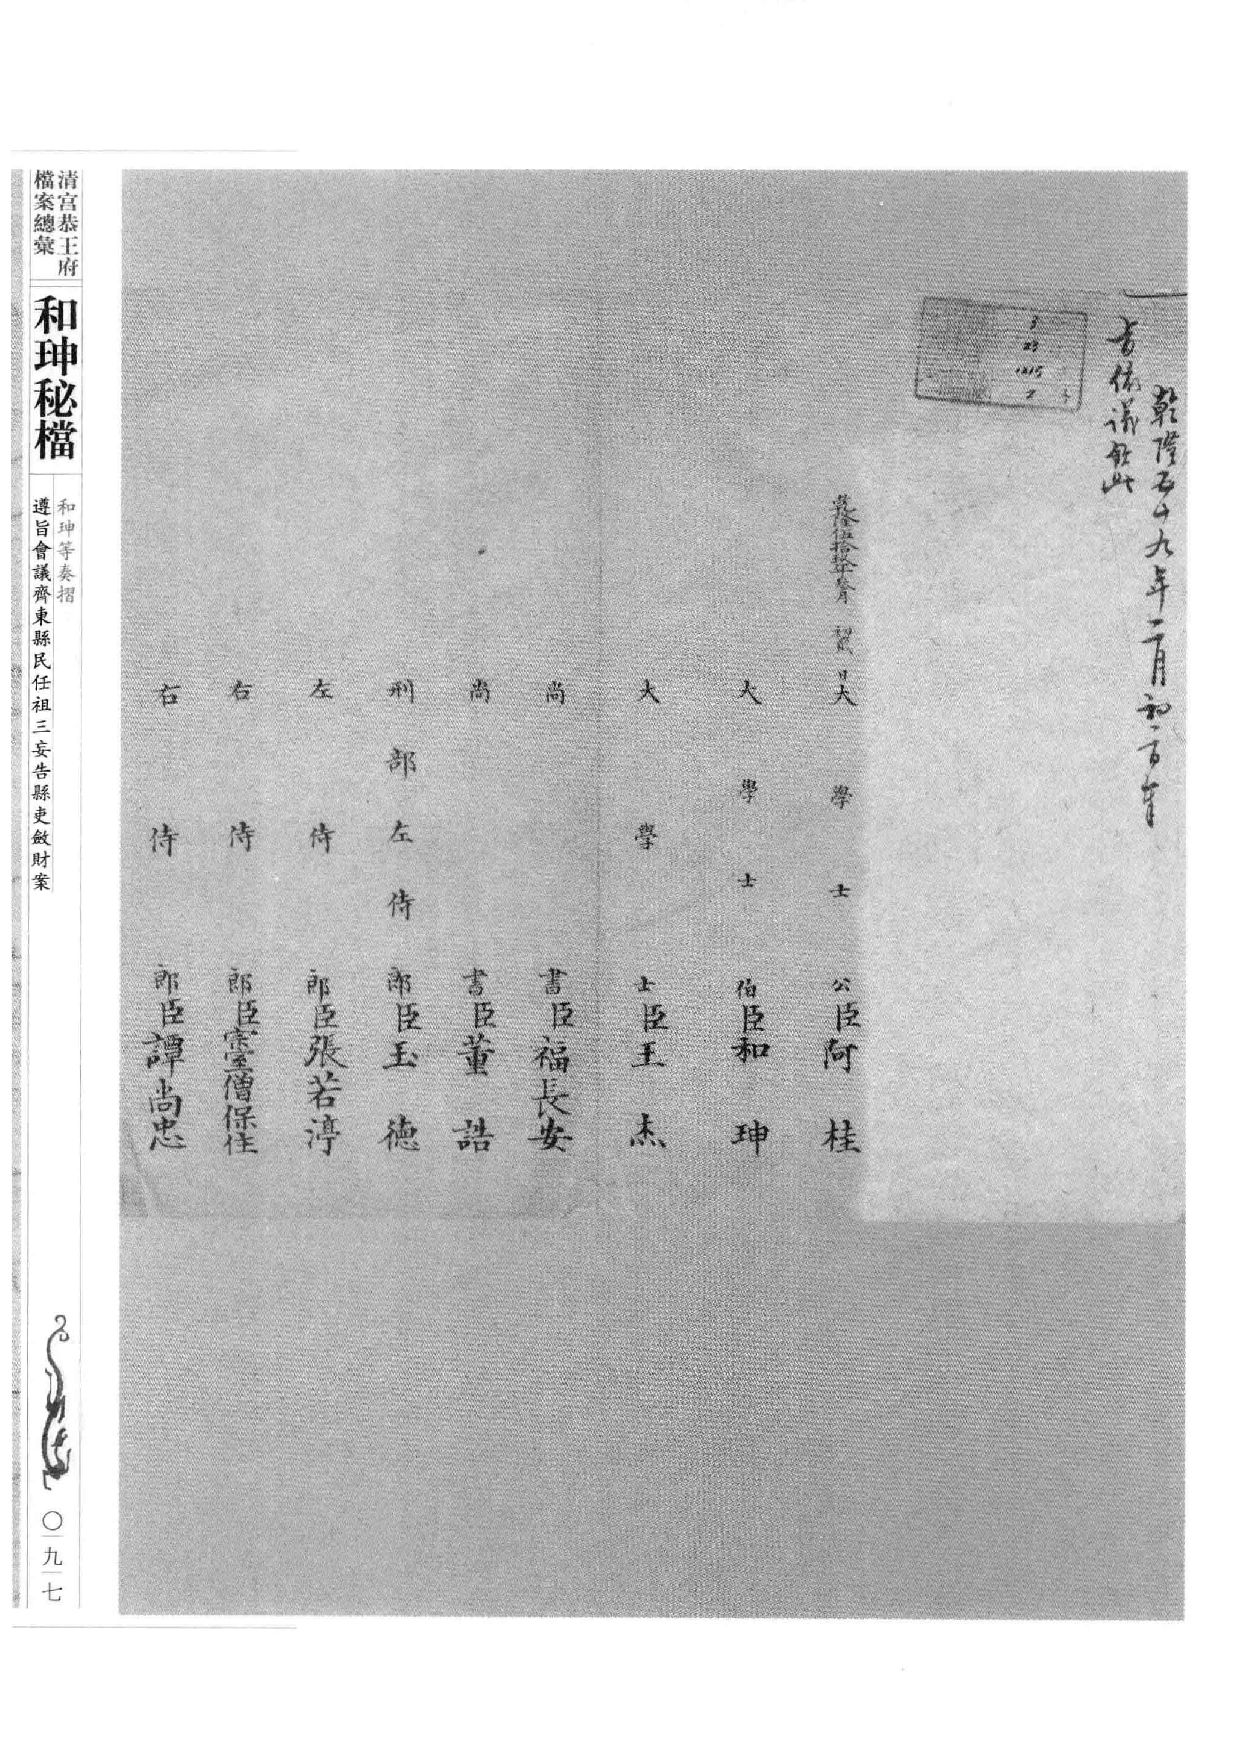 乾隆五十九年二月初二日奉
旨依議欽此
3
23
1215
2
乾隆伍拾玖年貳月 初貳 日
大學士公臣阿桂
大學士伯臣和珅
大學士臣王杰
尚書臣福長安
尚書臣董誥
刑部左侍郎臣玉德
左侍郎臣張若渟
右侍郎臣宗室僧保住
右侍郎臣譚尚忠
清宮恭王府
檔案總彙
和珅秘檔
和珅等奏摺
遵旨會議齊東縣民任祖三妄告縣吏斂財案
〇九七